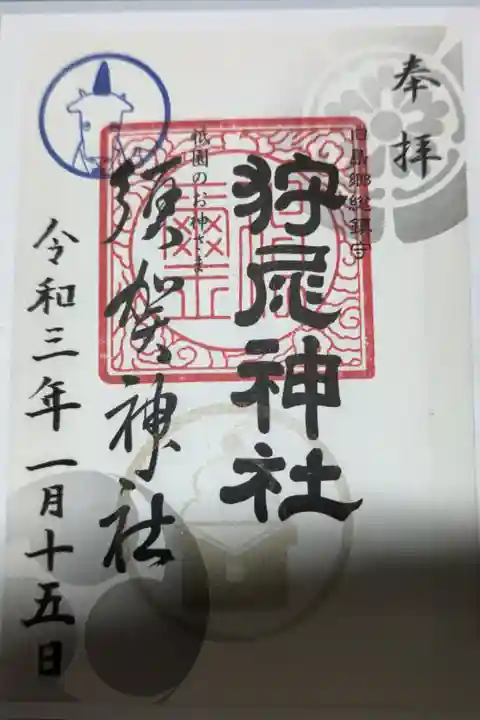 奉拝
旧島郷総鎮守
狩尾神社
祇園のお神さま
須賀神社
令和三年一月十五日